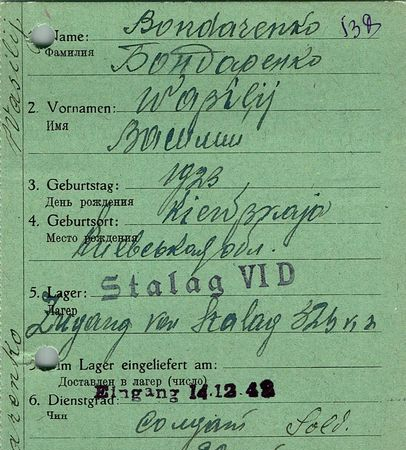 Name: Bondarenko 53D
Фамилия Бондаренко
2. Vornamen: Waßilij
Имя Василии
3. Geburtstag: 1923
День рождения
4. Geburtsort:
Место рождения Киевськая обл.
5. Lager: Stalag VI D
Лагерь
Zugang von Stalag 326
Im Lager eingeliefert am:
Доставлен в лагер (число)
Eingang 14.12.42
6. Dienstgrad: Солдат Sold.
Чин